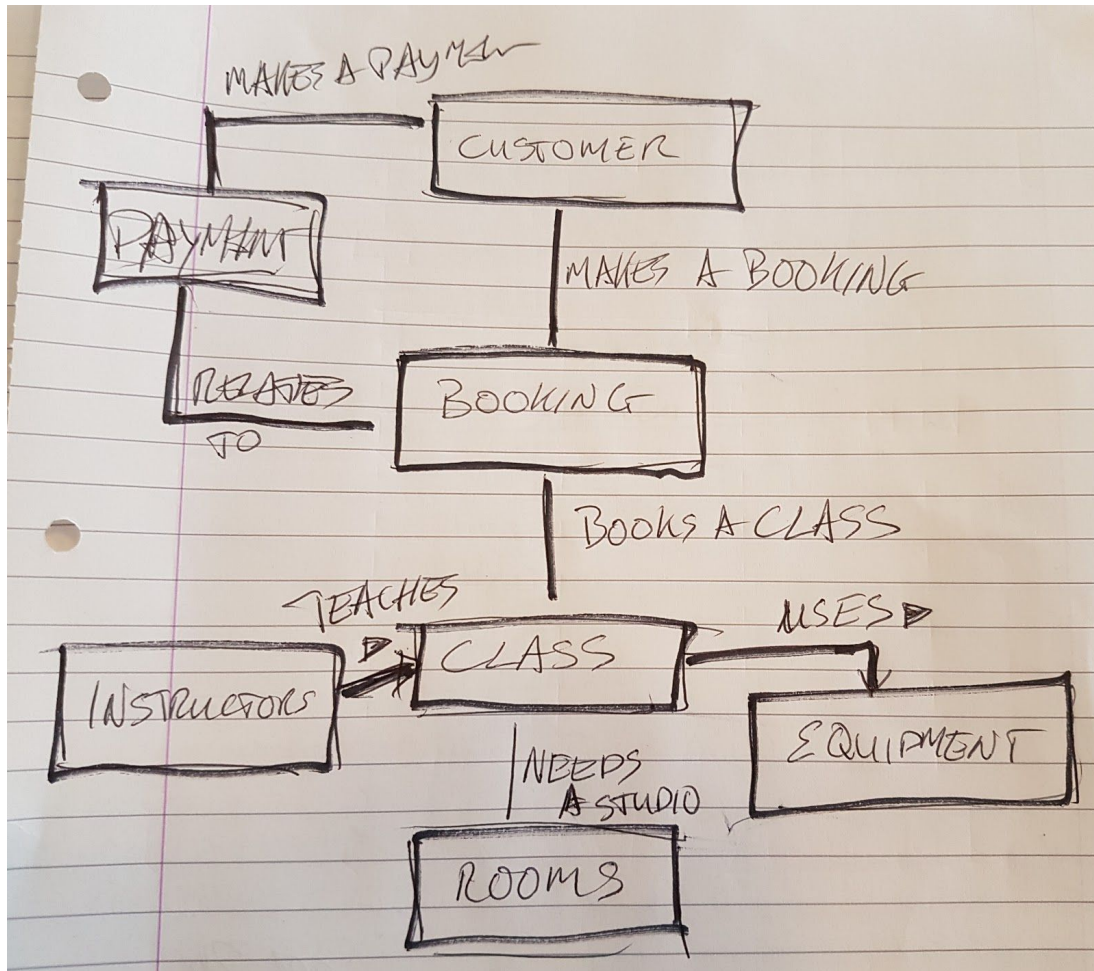 MAKES A PAYMEN
CUSTOMER
PAYMENT
MAKES A BOOKING
RELATES
TO
BOOKING
BOOKS A CLASS
TEACHES
CLASS
USES
INSTRUCTORS
EQUIPMENT
NEEDS
A STUDIO
ROOMS